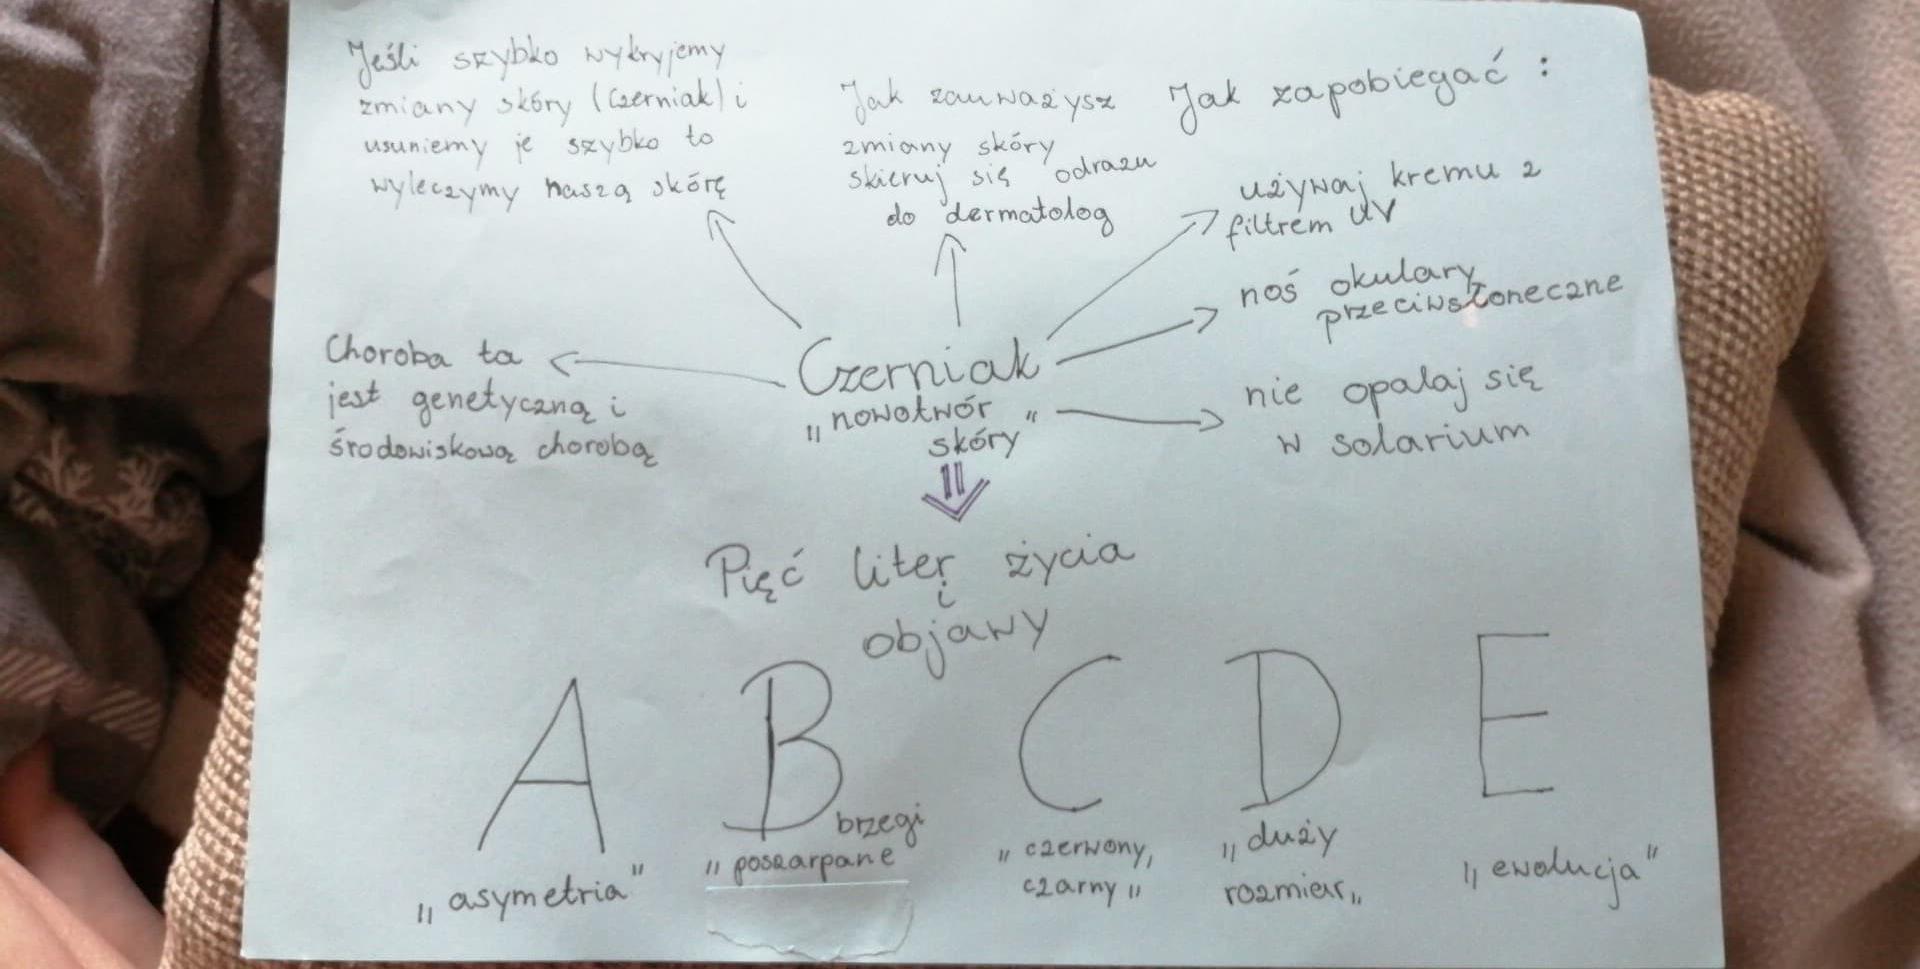 Jeśli szybko wykryjemy
zmiany skóry (czerniak) i
usuniemy je szybko to
wyleczymy naszą skórę
Jak zauważysz
zmiany skóry
skieruj się odrazu
do dermatolog
Jak zapobiegać :
używaj kremu z
filtrem UV
noś okulary
przeciwsłoneczne
nie opalaj się
w solarium
Choroba ta
jest genetyczną i
środowiskową chorobą
Czerniak
„nowotwór
skóry"
Pięć liter życia
i
objawy
A
„asymetria"
B
brzegi
„poszarpane
C
„czerwony,
czarny„
D
„duży
rozmiar„
E
„ewolucja"